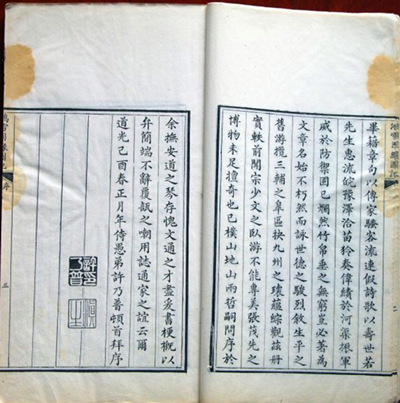 畢籍章句以傳家騷客流連假詩歌以寄世若
先生惠流皖豫澤洽苗偉績於河渠軍
威於防禦固已爛然竹帛垂之無窮豈必著為
文章名始不朽然而詠世德之駿烈敘生平之
舊游攬三輔之阜區抉九州之蘊綜觀茲冊
實軼前聞宗少文之臥游不能專美張茂先之
博物未足擅奇也已樸山地山兩哲嗣問序於
二
余撫安道之琴存愧文通之才盡爰書梗概以
弁簡端不辭覆瓿之嘲用誌通家之誼云爾
道光己酉春正月年侍愚弟許乃普頓首拜序
許乃普印
序
三